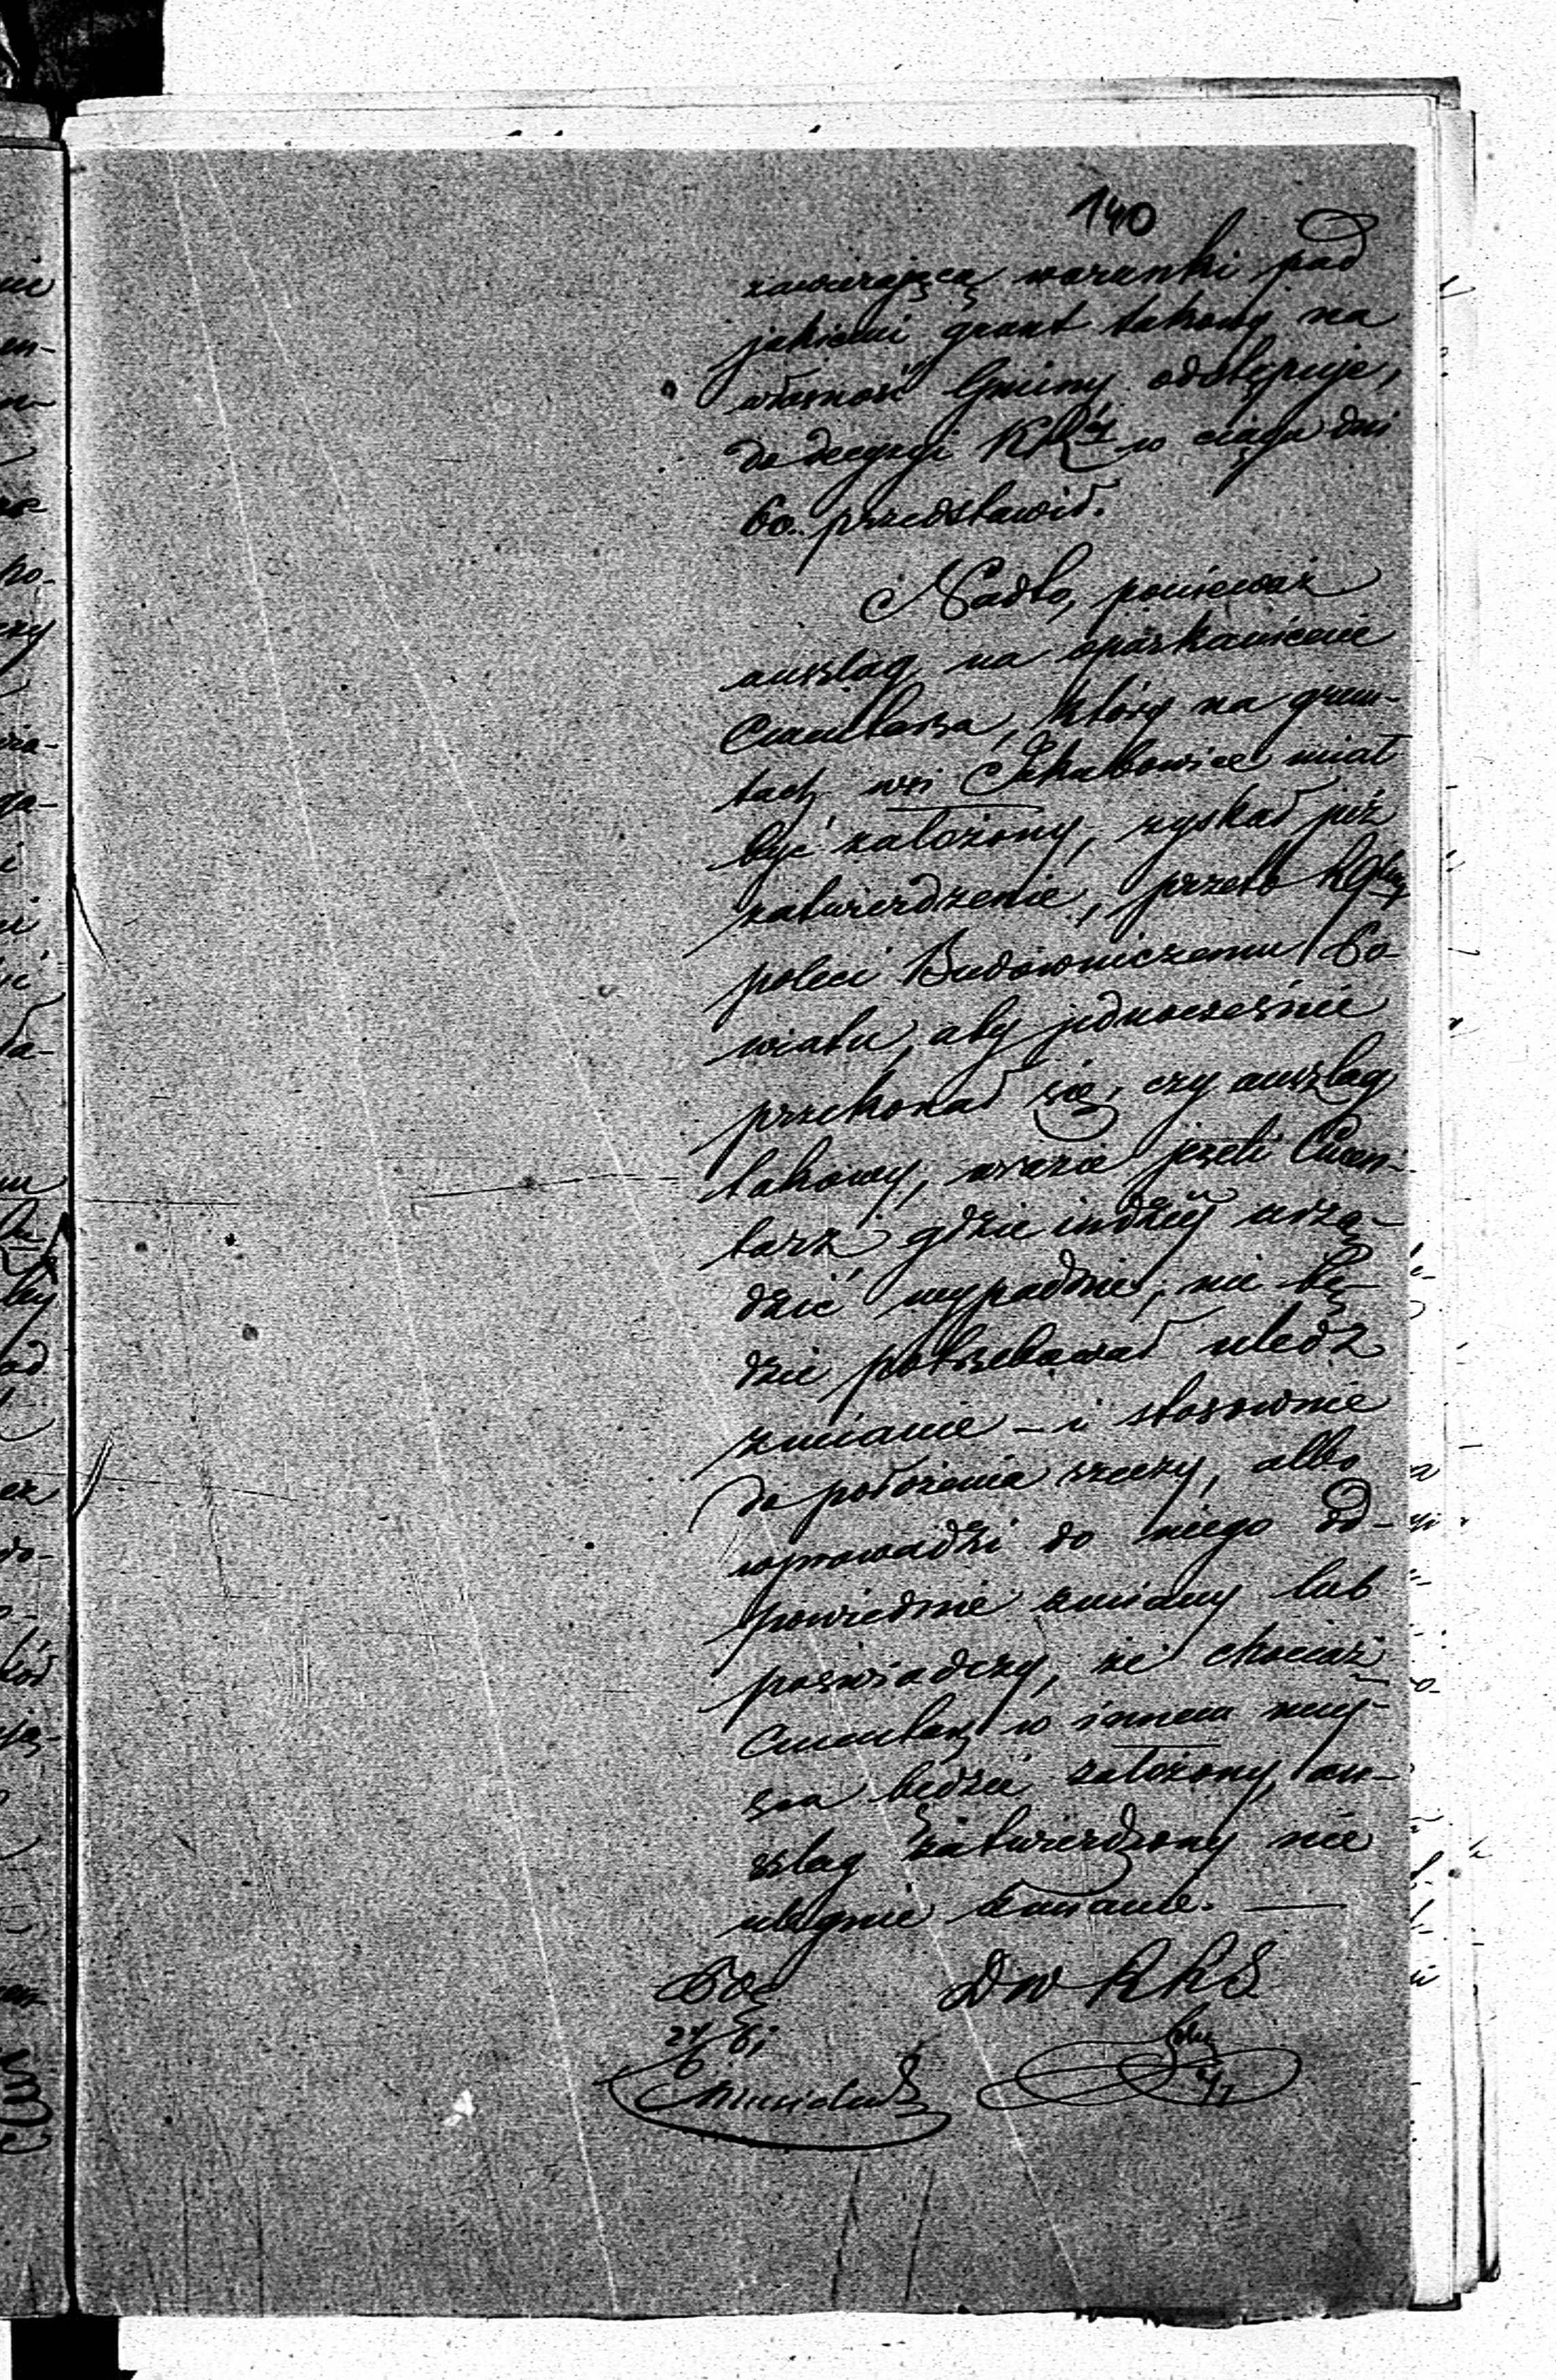 140
zawierającą warunki pod
jakiemi grunt takowy na
własność Gminy odstępuje,
do decyzyi KRéj w ciągu dni
60. przedstawił.
Nadto, ponieważ
anszlag na oparkanienie
Cmentarza, który na grun-
tach wsi miał
być założony, zyskał już
zatwierdzenie, przeto
poleci Budowniczemu Po-
wiatu, aby jednocześnie
przekonał się, czy anszlag
takowy, wrazie jeżeli Cmen-
tarz gdzie indziej urzą-
dzić wypadnie, nie bę-
dzie potrzebował uledz
zmianie – i stosownie
do położenia rzeczy, albo
wprowadzi do niego od-
powiednie zmiany lub
poświadczy, że chociaż
Cmentarz w innem miej-
scu będzie założony, an-
szlag zatwierdzony nie
ulegnie zmianie. —
DW KKS